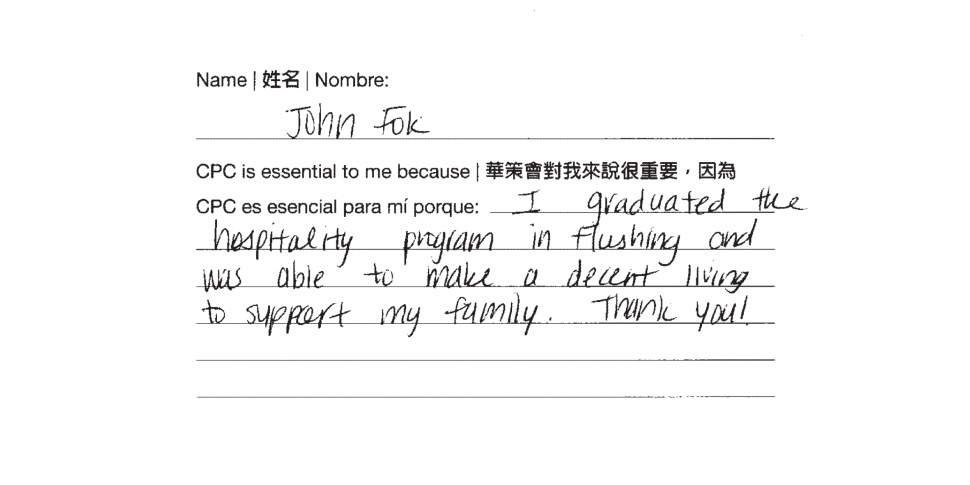 Name | 姓名 | Nombre:
John Fok
CPC is essential to me because | 華策會對我來說很重要，因為
CPC es esencial para mí porque: I graduated the
hospitality program in Flushing and
was able to make a decent living
to support my family. Thank you!